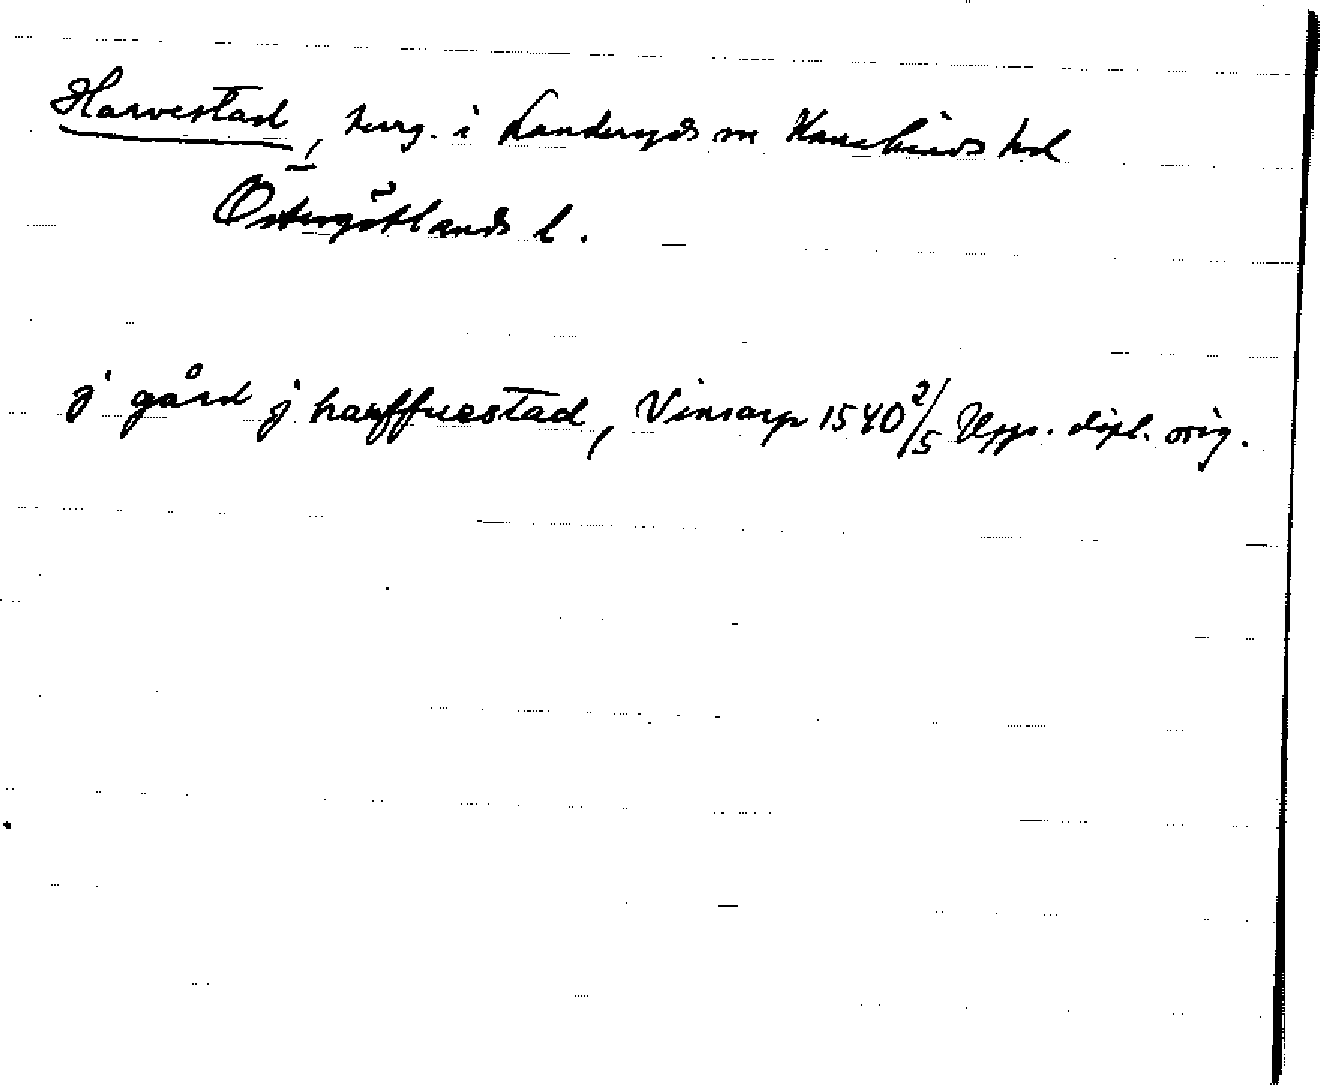 Harvestad, herrg. i Landeryds sn Hanekinds hd
Östergötlands l.
j gård j harffuestad, Vinsarp 1540 2/5 Upps. dipl. orig.